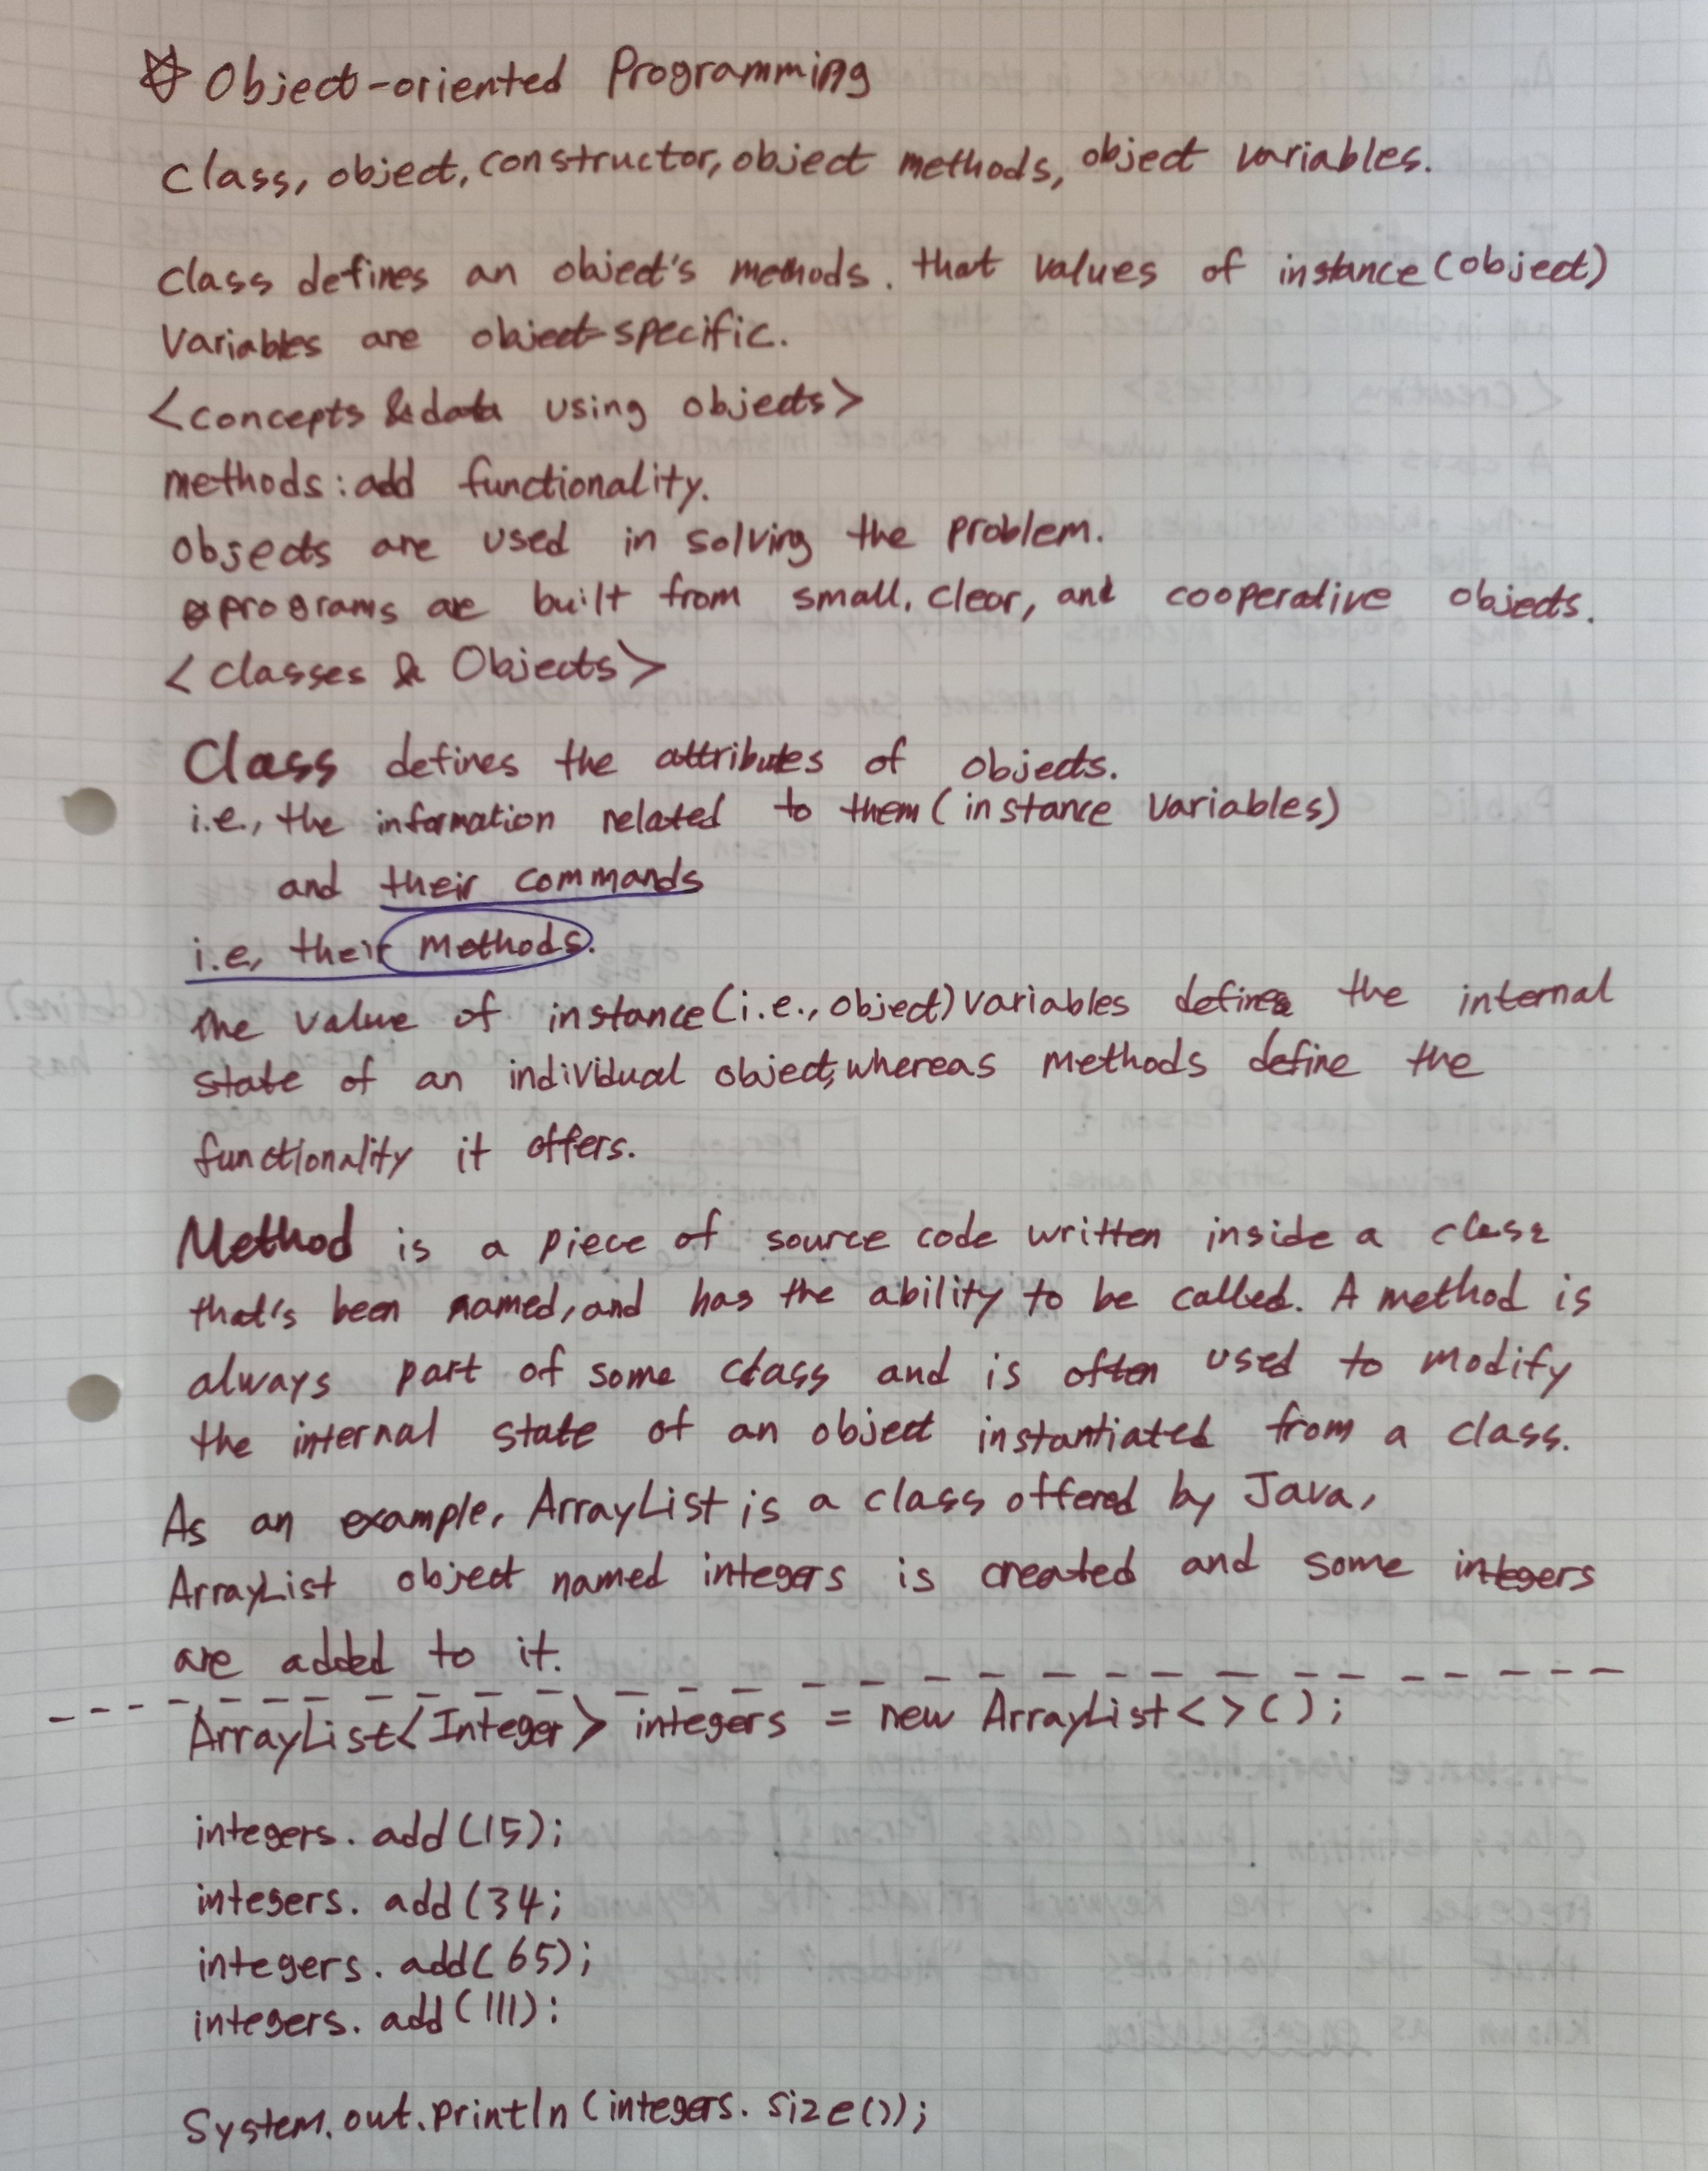 ☆ Object-oriented Programming
Class, object, constructor, object methods, object variables.
class defines an object's methods. that values of instance (object)
Variables are object-specific.
<concepts & data using objects>
methods: add functionality.
objects are used in solving the problem.
programs are built from small, clear, and cooperative objects.
<classes & Objects>
Class defines the attributes of objects.
i.e., the information related to them (instance variables)
and their commands
i.e, their methods.
The value of instance (i.e., object) variables defines the internal
state of an individual object, whereas methods define the
functionality it offers.
Method is a piece of source code written inside a class
that's been named, and has the ability to be called. A method is
always part of some class and is often used to modify
the internal state of an object instantiated from a class.
As an example, ArrayList is a class offered by Java,
ArrayList object named integers is created and some integers
are added to it.
ArrayList<Integer> integers = new ArrayList<>();
integers. add(15);
integers. add(34;
integers. add(65);
integers. add(111):
System.out.println(integers. size());